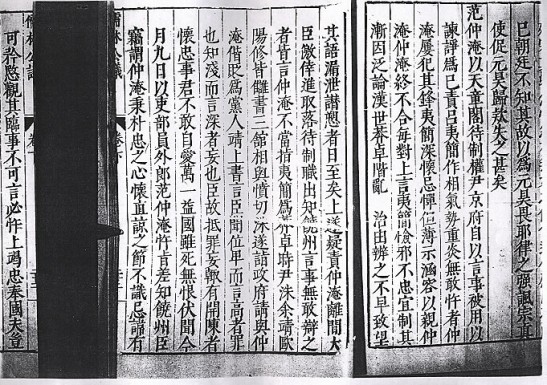 已朝廷不知其故以爲元昊畏耶律之强諷宗真
使促元昊歸欵失之甚矣
范仲淹以天章閣待制權尹京府自以言事被用以
諫諍爲已責呂夷簡作相氣勢重炎無敢忤者仲
淹屢犯其鋒夷簡深懷忌憚但薄示涵容以親仲
淹仲淹終不合毎對上言夷簡憸邪不忠宜制其
漸因乏論漢世莽卓階亂 治由辨之不早致望
其語漏泄譖愬者日至矣上遂疑責仲淹離間大
臣僥倖進取落待制職出知饒州言事無敢辯之
者皆言仲淹不當指夷簡爲莽卓時尹洙余靖歐
陽修皆讎書三館相與憤切深遂請政府請與仲
淹偕貶爲黨人靖上書言臣聞位卑而言高者罪
也知淺而言深者妄也臣故抵罪妄輙有開陳者
懷忠事君不敢自愛萬一益國雖死無恨伏聞今
月九日以吏部員外郎范仲淹忤肯差知饒州臣
竊謂仲淹秉朴忠之心懷直諒之節不識忌諱有
可矜愍觀其臨事不可言必忤上竭忠奉國夫豈
儒林公議
卷下